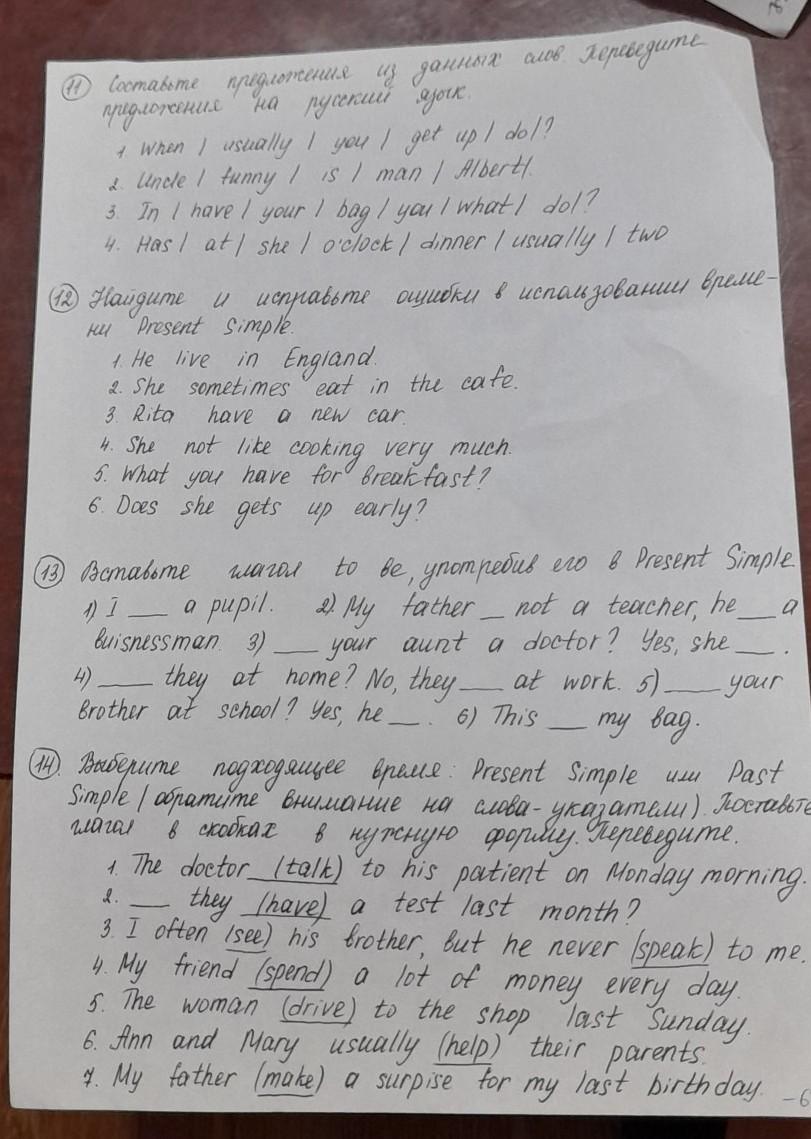 11 Составьте предложения из данных слов. Переведите
предложения на русский язык.
1 When / usually / you / get up / do/?
2. Uncle / funny / is / man / Albert/.
3. In / have / your / bag / you / what / do/?
4. Has / at / she / o'clock / dinner / usually / two
12 Найдите и исправьте ошибки в использовании време-
ни Present Simple.
1. He live in England.
2. She sometimes eat in the cafe.
3. Rita have a new car.
4. She not like cooking very much.
5. What you have for breakfast?
6. Does she gets up early?
13 Вставьте глагол to be, употребив его в Present Simple.
1) I ___ a pupil. 2) My father _ not a teacher, he __ a
buisnessman. 3) ___ your aunt a doctor? Yes, she ___.
4) ____ they at home? No, they ___ at work. 5) ____ your
brother at school? Yes, he __. 6) This __ my bag.
14. Выберите подходящее время: Present Simple или Past
Simple (обратите внимание на слова-указатели). Поставьте
глагол в скобках в нужную форму. Переведите.
1. The doctor (talk) to his patient on Monday morning.
2. ___ they (have) a test last month?
3. I often (see) his brother, but he never (speak) to me.
4. My friend (spend) a lot of money every day.
5. The woman (drive) to the shop last Sunday.
6. Ann and Mary usually (help) their parents.
7. My father (make) a surpise for my last birthday.
-6